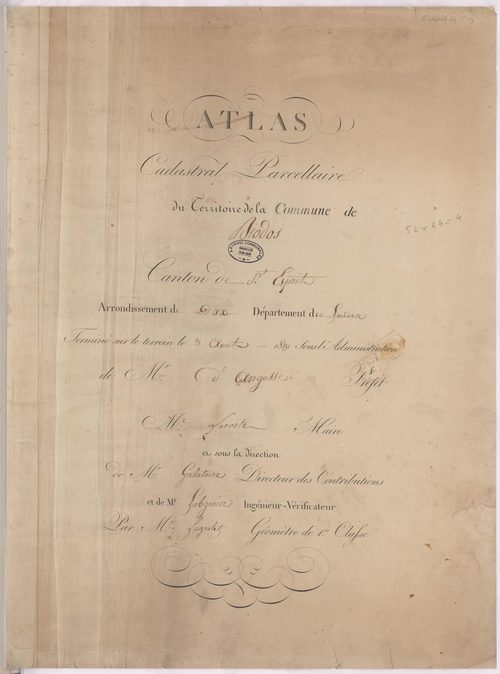 ATLAS
Cadastral Parcellaire
du Territoire de la Commune de
Biodos
Canton de St Esprit
Arrondissement de Dax Département des Landes
Terminé sur le terrein le 3 Août Sous l'Administration
de Mr. d'Angosse Préfet
Mr. Lacoste Maire
et sous la direction
de Mr. Galatoire Directeur des Contributions
et de Mr. Ingénieur-Vérificateur
Par Mr. Géomètre de 1re Classe
52 x 68 = 4